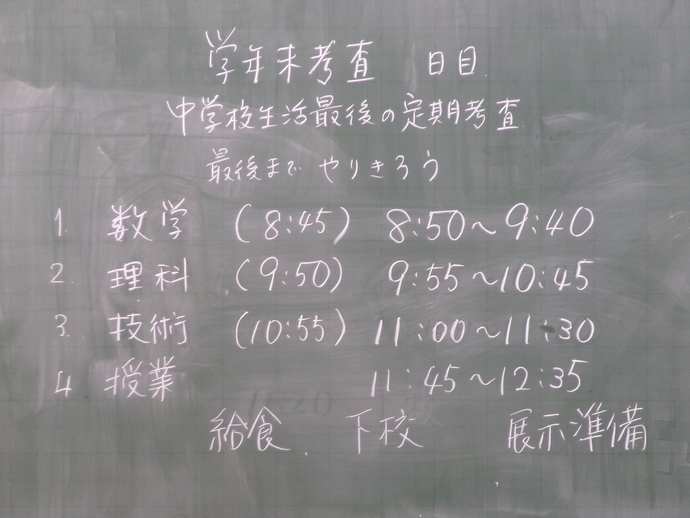 学年末考査 日目
中学校生活最後の定期考査
最後まで やりきろう
1. 数学 (8:45) 8:50～9:40
2. 理科 (9:50) 9:55～10:45
3. 技術 (10:55) 11:00～11:30
4 授業 11:45～12:35
給食. 下校 展示準備